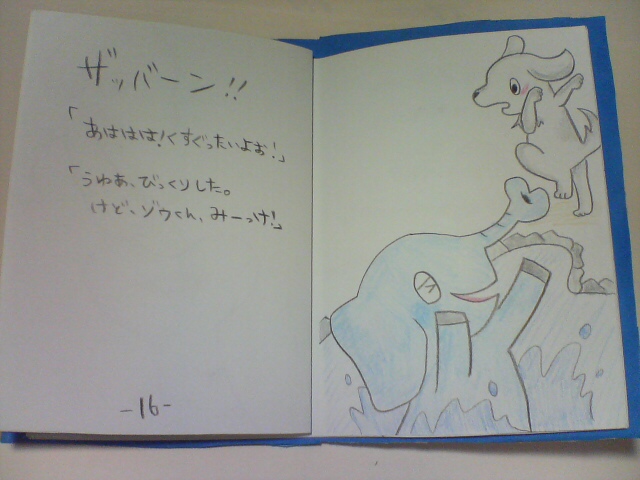 ザッバーン!!
「あははは!くすぐったいよお!」
「うわあ、びっくりした。
けど、ゾウくん、みーっけ!」
-16-